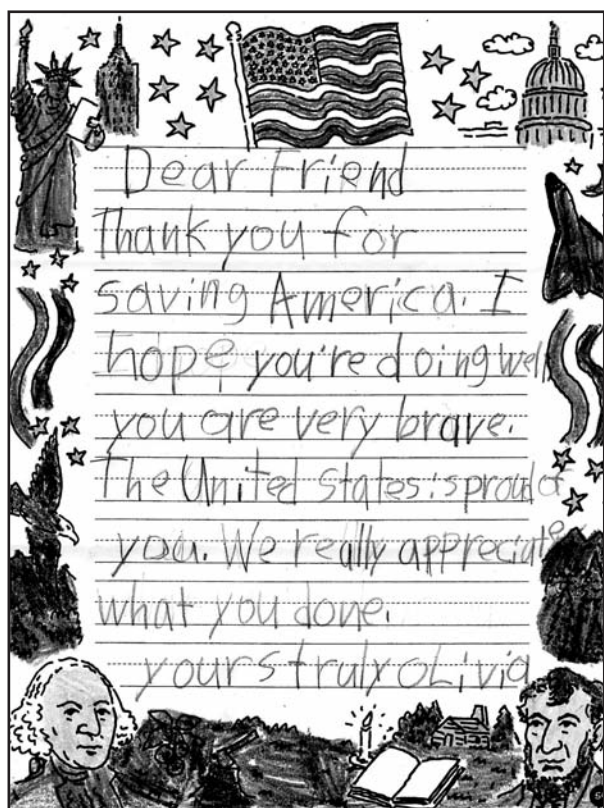 Dear Friend
Thank you for
saving America. I
hope you're doing well
you are very brave.
The United States is proud of
you. We really appreciate
what you done.
yours truly OLivia